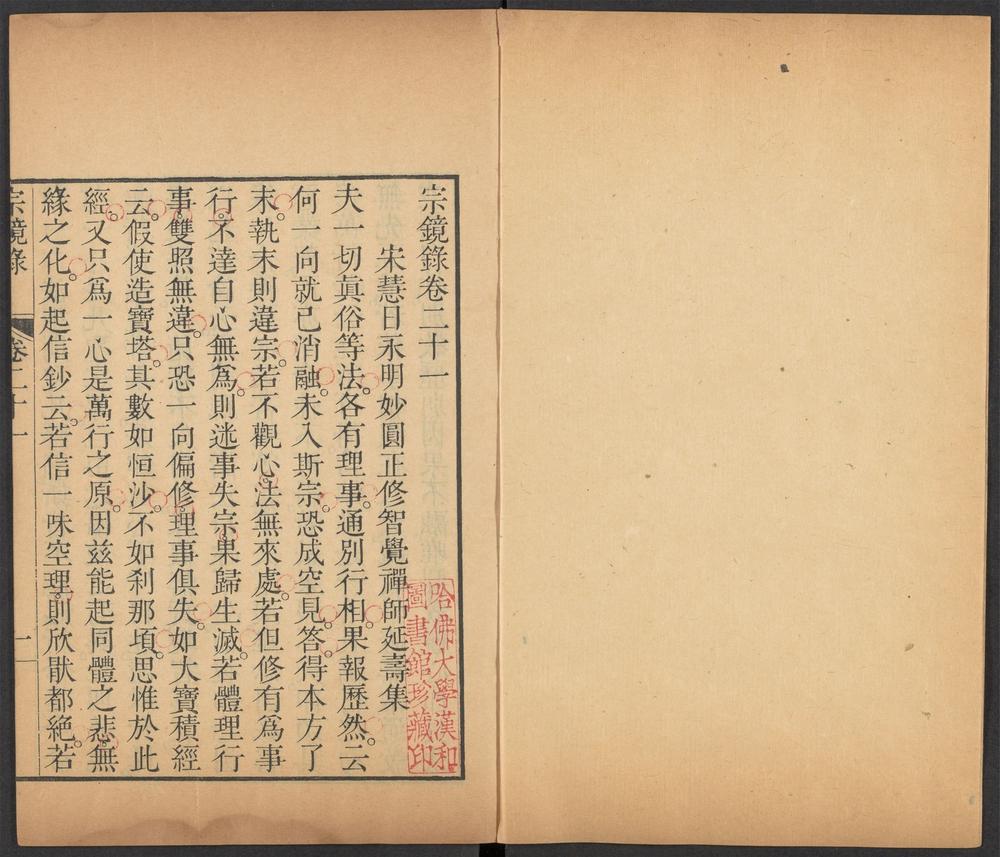 宗鏡錄卷二十一
宋慧日永明妙圓正修智覺禪師延壽集
夫一切眞俗等法。各有理事。通別行相。果報歷然。云
何一向就己消融。未入斯宗。恐成空見。答。得本方了
末。執末則違宗。若不觀心。法無來處。若但修有爲事
行。不達自心無爲。則迷事失宗。果歸生滅。若體理行
事。雙照無違。只恐一向偏修。理事俱失。如大寶積經
云。假使造寶塔。其數如恒沙。不如刹那頃。思惟於此
經。又只爲一心是萬行之原。因兹能起同體之悲。無
緣之化。如起信鈔云。若信一味空理。則欣猒都絶。若
宗鏡錄
卷二十一
一
哈佛大學漢和
圖書館珍藏印